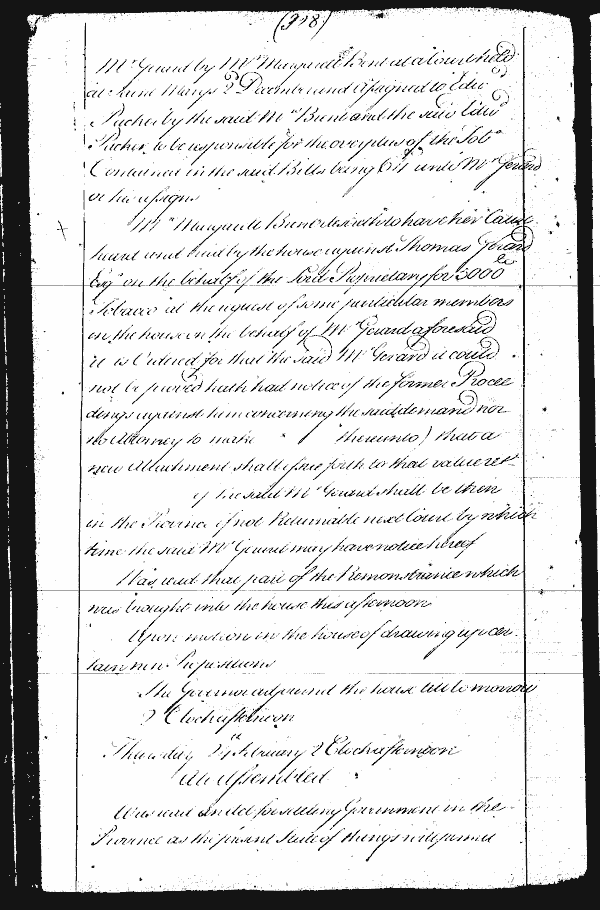 (328)
Mr Gerard by Mrs Margarett Brent at a Court held
at Saint Marys 2 December and assigned to Edw
Packer by the said Mrs Brent and the said Edw
Packer to be responsible for the overplus of the Tobo
Contained in the said Bills being 6 lt unto Mr Gerard
or his assigns
Mrs Margarett Brent desireth to have her Cause
heard and tried by the house against Thomas Gerard
Esqr on the behalf of the Lord Proprietary for 3000 lb
Tobacco at the request of some particular members
in the house on the behalf of Mr Gerard aforesaid
it is Ordered for that the said Mr Gerard it could
not be proved hath had notice of the former Procee
dings against him concerning the said demand nor
no Attorney to make thereunto) that a
new Attachment shall issue forth to that value ret
if the said Mr Gerard shall be then
in the Province if not Returnable next Court by which
time the said Mr Gerard may have notice hereof
Was read that part of the Remonstrance which
was brought into the house this afternoon
Upon motion in the house of drawing up cer
tain new Propositions
The Governor adjourned the house till to morrow
2 Clock afternoon
Thursday 24th February 2 Clock afternoon
All Assembled
Was read an Act for settling Government in the
Province as the present State of things will permit